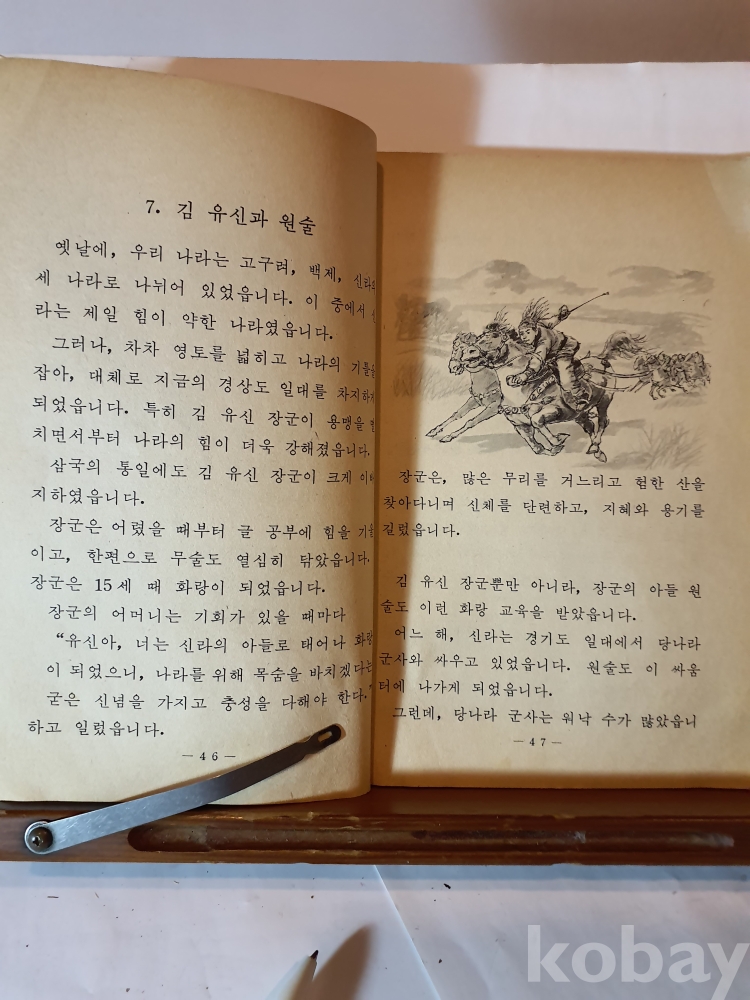 7. 김 유신과 원술
옛날에, 우리 나라는 고구려, 백제, 신라의
세 나라로 나뉘어 있었읍니다. 이 중에서
라는 제일 힘이 약한 나라였읍니다.
그러나, 차차 영토를 넓히고 나라의 기틀을
잡아, 대체로 지금의 경상도 일대를 차지하게
되었읍니다. 특히 김 유신 장군이 용맹을
치면서부터 나라의 힘이 더욱 강해졌읍니다.
삼국의 통일에도 김 유신 장군이 크게
지하였읍니다.
장군은 어렸을 때부터 글 공부에 힘을
이고, 한편으로 무술도 열심히 닦았읍니다.
장군은 15세 때 화랑이 되었읍니다.
장군의 어머니는 기회가 있을 때마다
“유신아, 너는 신라의 아들로 태어나 화랑
이 되었으니, 나라를 위해 목숨을 바치겠다는
굳은 신념을 가지고 충성을 다해야 한다.”
하고 일렀읍니다.
— 46 —
장군은, 많은 무리를 거느리고 험한 산을
찾아다니며 신체를 단련하고, 지혜와 용기를
길렀읍니다.
김 유신 장군뿐만 아니라, 장군의 아들 원
술도 이런 화랑 교육을 받았읍니다.
어느 해, 신라는 경기도 일대에서 당나라
군사와 싸우고 있었읍니다. 원술도 이 싸움
터에 나가게 되었읍니다.
그런데, 당나라 군사는 워낙 수가 많았읍니
— 47 —
kobay